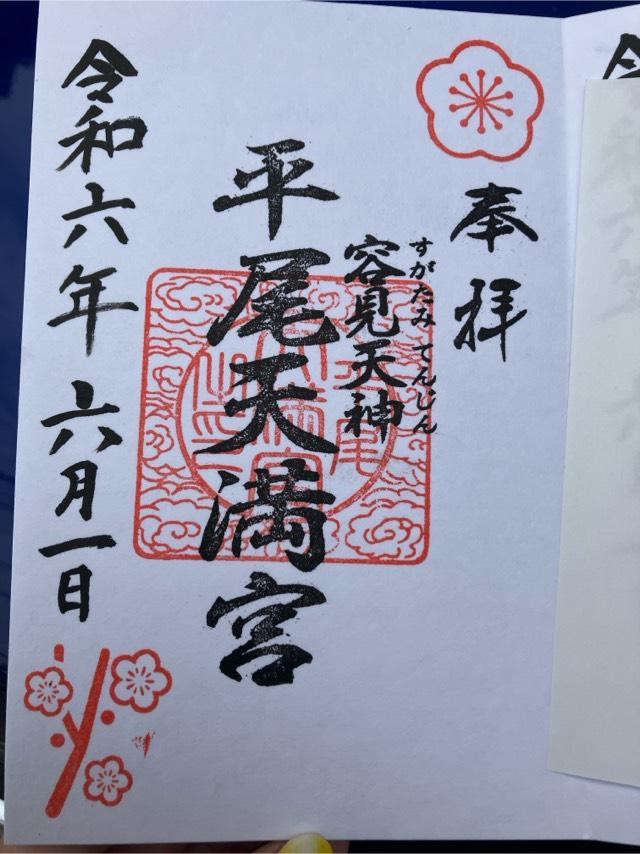 奉拝
すがたみてんじん
容見天神
平尾天満宮
令和六年 六月一日